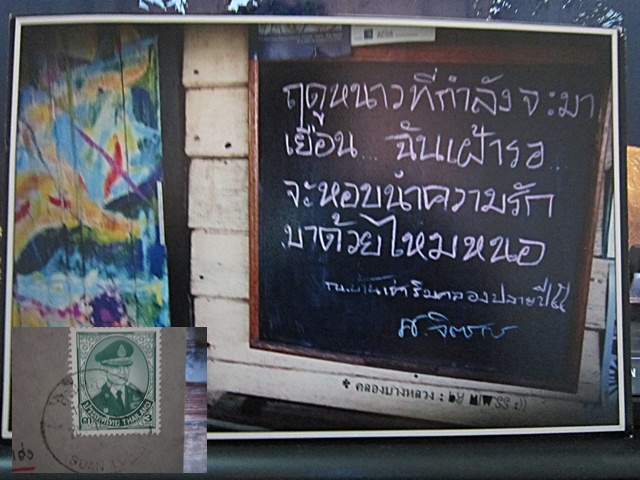 ฤดูหนาวที่กำลังจะมา
เยือน... ฉันเฝ้ารอ...
จะหอบนำความรัก
มาด้วยไหมหนอ
ณ.บ้านเช่าริมคลองปลายปีนี้
* คลองบางหลวง : by MIWSS :))
ประเทศไทย THAILAND